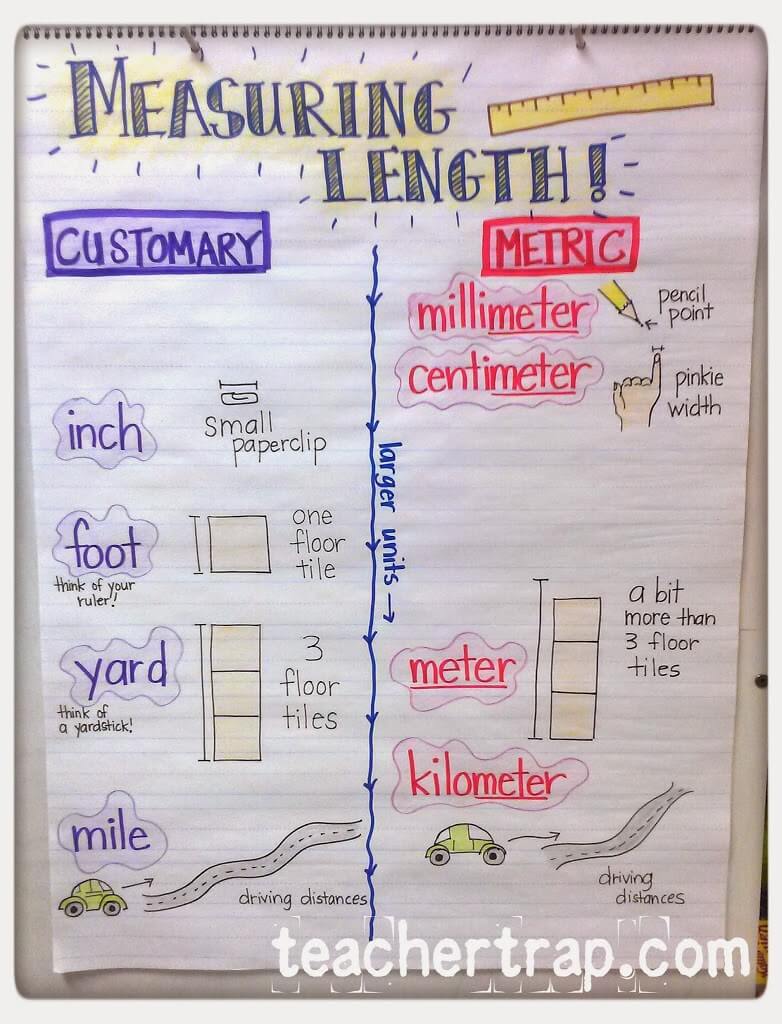 MEASURING
LENGTH!
CUSTOMARY
inch
small
paperclip
foot
think of your
ruler!
one
floor
tile
yard
think of
a yardstick!
3
floor
tiles
mile
driving distances
larger units →
METRIC
millimeter
pencil
point
centimeter
pinkie
width
meter
a bit
more than
3 floor
tiles
kilometer
driving
distances
teachertrap.com